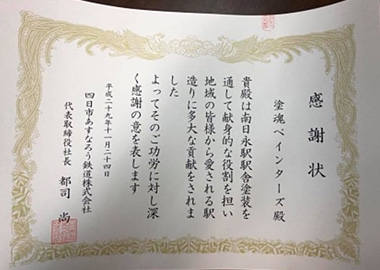 感謝状
塗魂ペインターズ殿
貴殿は南日永駅駅舎塗装を
通して献身的な役割を担い
地域の皆様から愛される駅
造りに多大な貢献をされま
した
よってそのご功労に対し深
く感謝の意を表します
平成二十九年十一月二十四日
四日市あすなろう鉄道株式会社
代表取締役社長 都司 尚